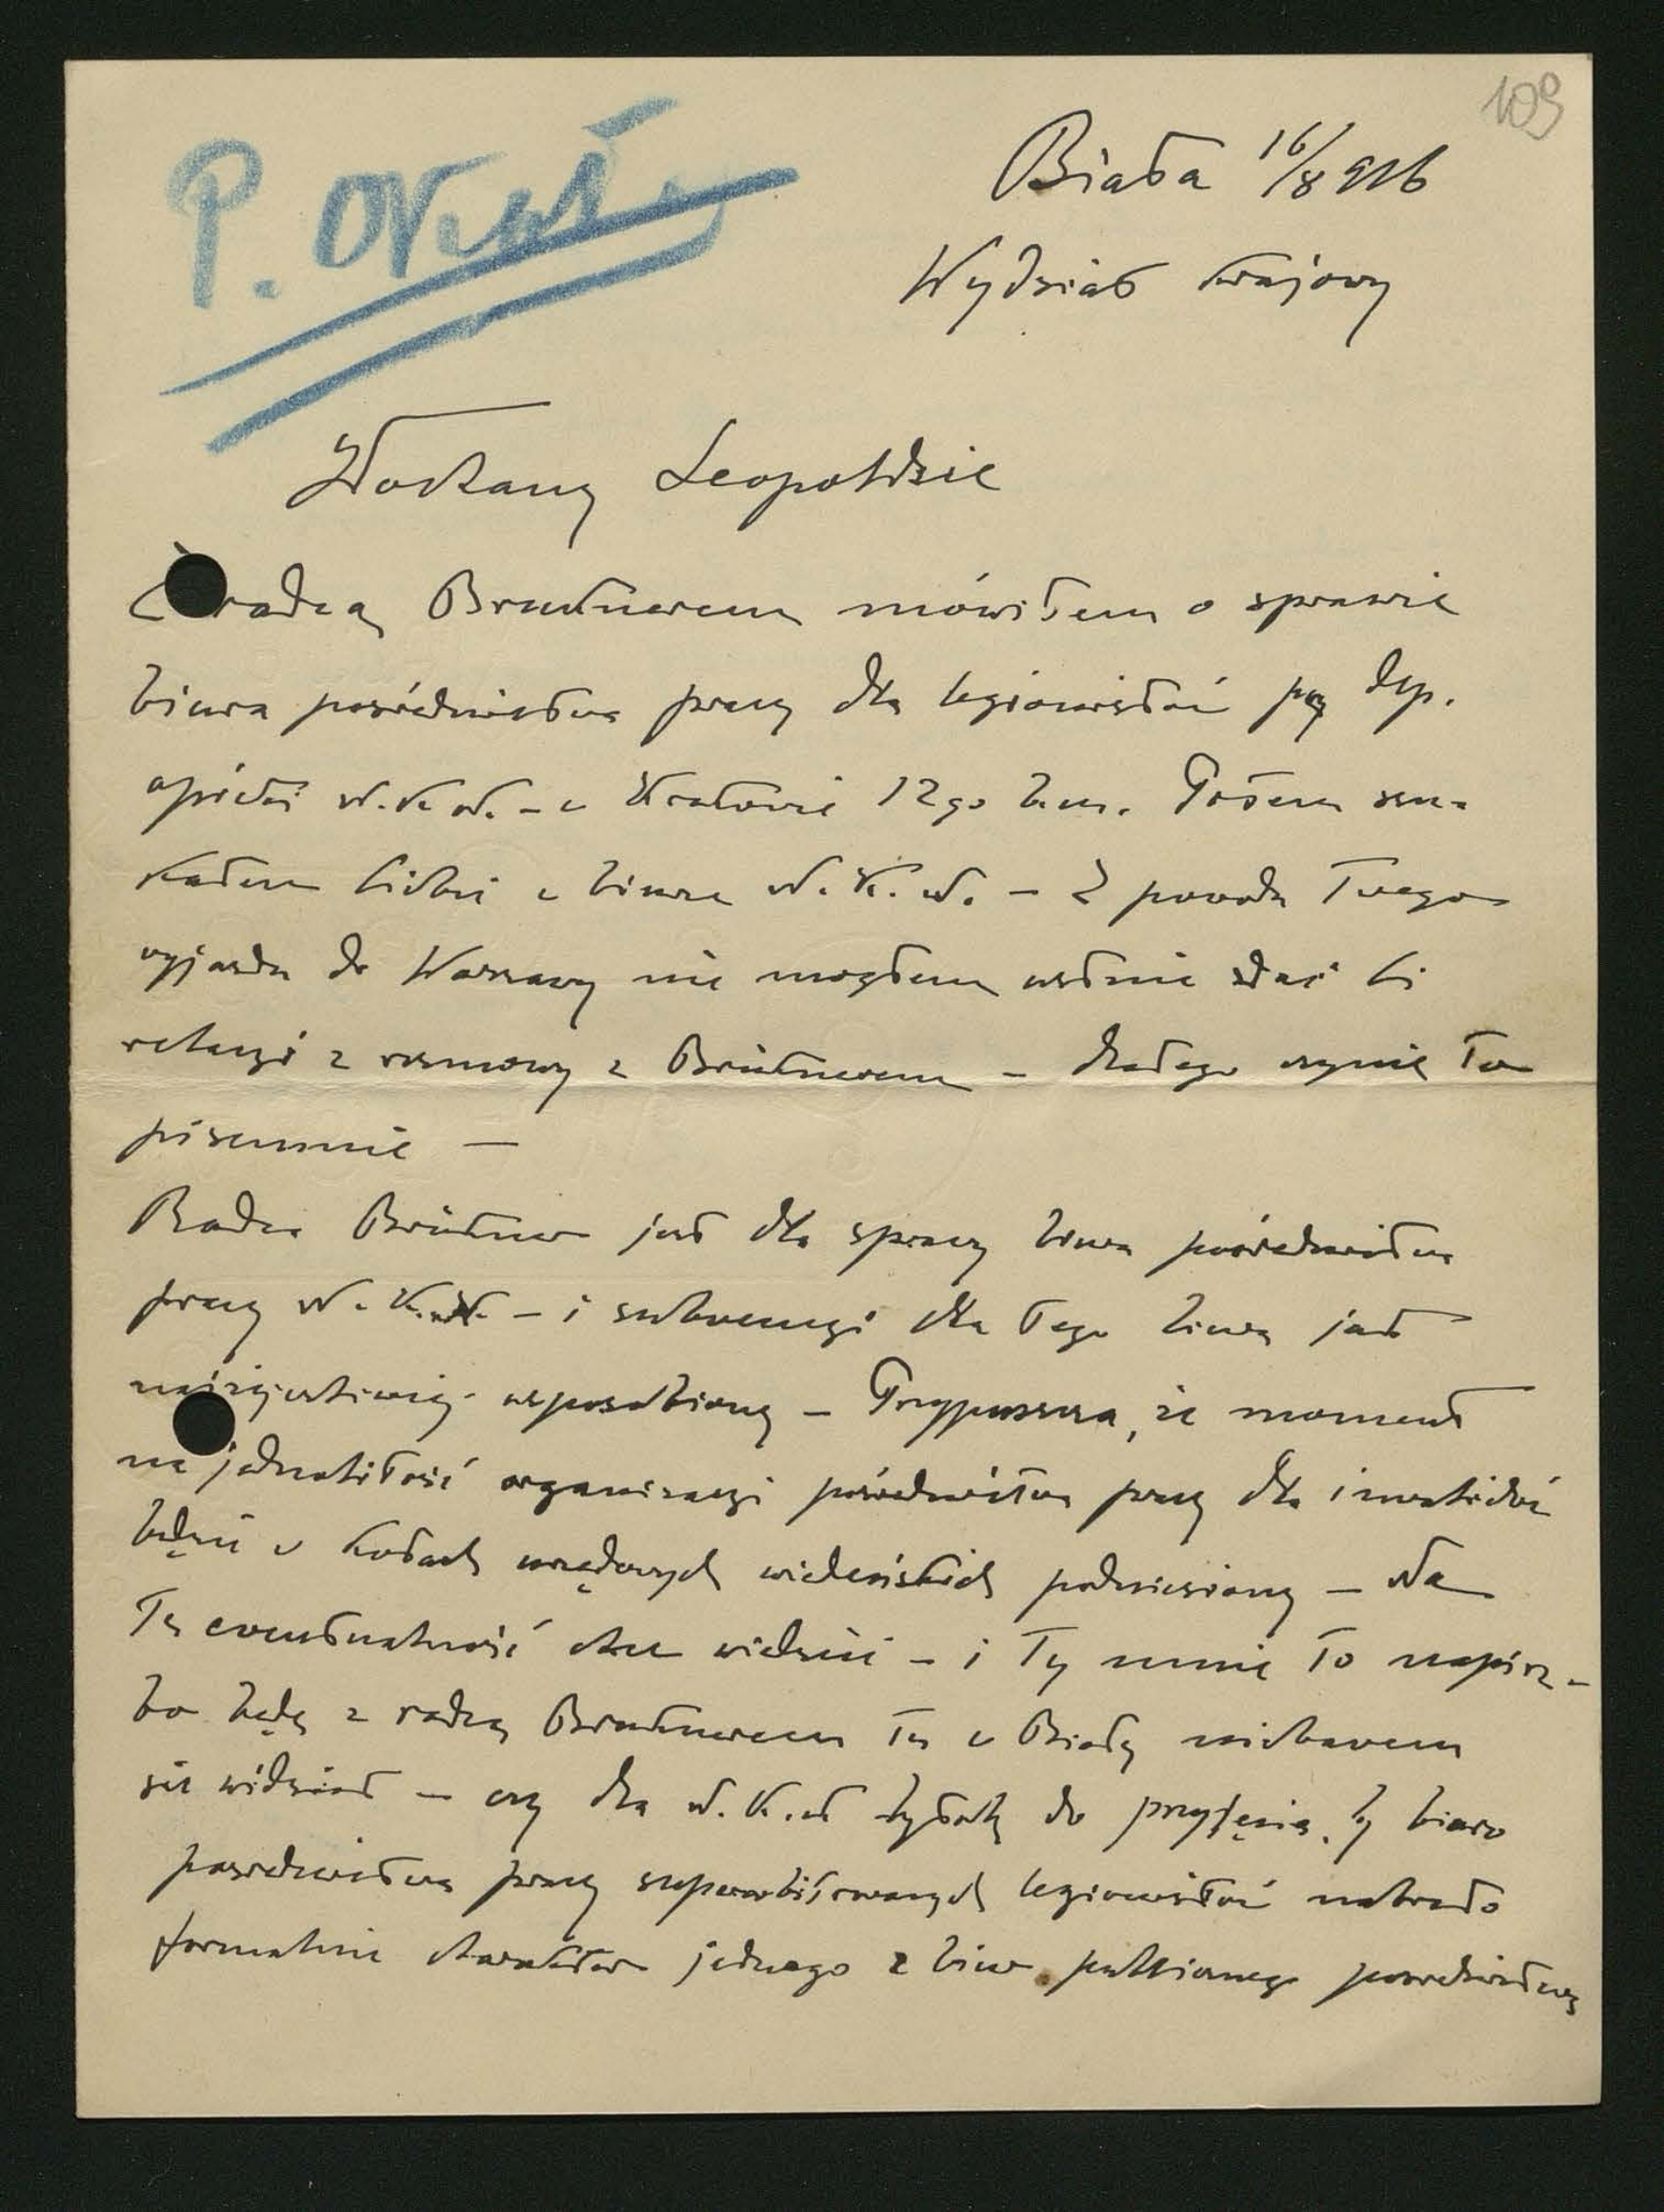 109
P.
Biała 16/8 916
Wydział krajowy
Kochany Leopoldzie
radcą Brucknerem mówiłem o sprawie
biura pośrednictwa pracy dla legionistów przy Dep.
opieki N.K.N. – w Krakowie 12go b.m. Potem szu-
kałem Ciebie w biurze N.K.N. – Z powodu Twego
wyjazdu do Warszawy nie mogłem ustnie zdać Ci
relacyi z rozmowy z Brücknerem – dlatego czynię to
pisemnie –
Radca Brückner jest dla sprawy biura pośrednictwa
pracy N.K.N. – i subwencyi dla tego biura jak
najżyczliwiej usposobiony – Przypuszcza, że moment
na jednolitość organizacyi pośrednictwa pracy dla inwalidów
będzie w kołach urzędowych wiedeńskich podniesiony – Na
tę ewentualność chce wiedzieć – i Ty mnie to napisz –
bo będę z radcą Brucknerem tu w Białej niebawem
się widział – czy dla N.K.N. byłoby do przyjęcia, by biuro
pośrednictwa pracy superarbitrowanych legionistów nabrało
formalnie charakter jednego z biur publicznego pośrednictwa